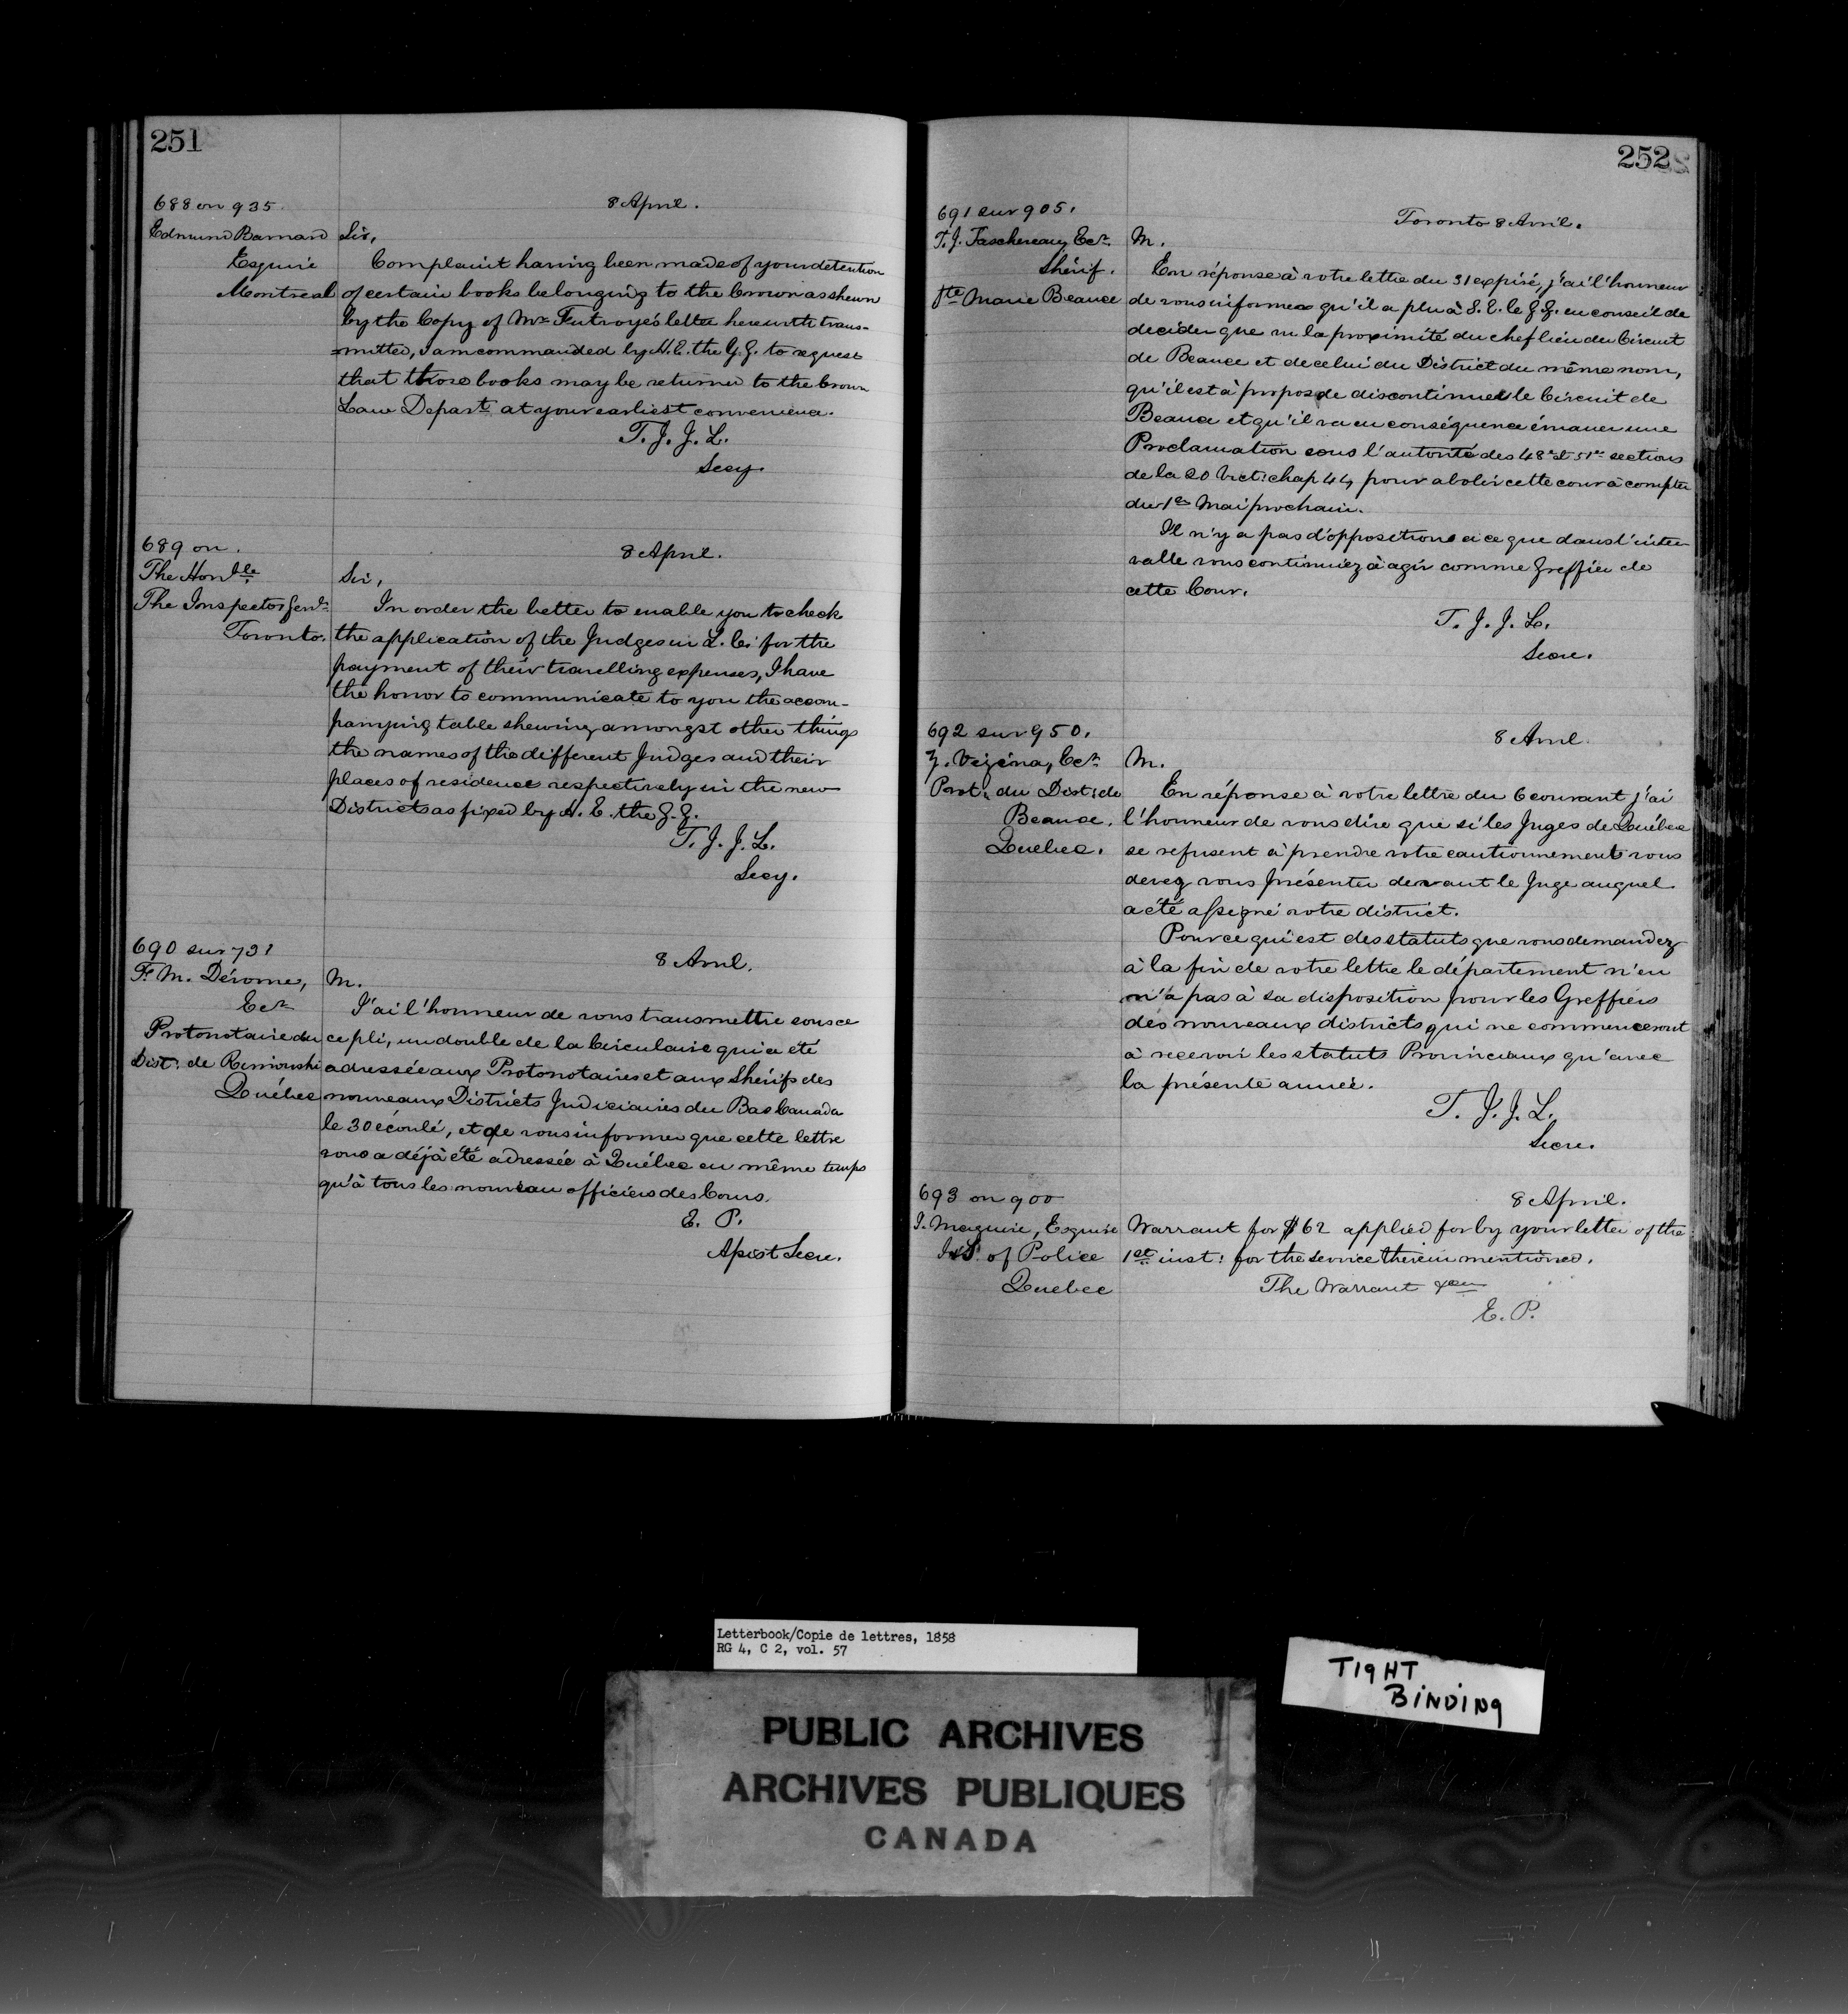 251
688 on 935.
8 April.
Edmund Barnard
Esquire
Montreal
Sir,
Complaint having been made of your detention
of certain books belonging to the Crown as shewn
by the Copy of Mr. Futvoye's letter herewith trans-
=mitted, I am commanded by H. E. the G. G. to request
that those books may be returned to the Crown
Law Depart. at your earliest convenience.
T. J. J. L.
Secy.
689 on.
8 April.
The Honble.
The Inspector Genl.
Toronto.
Sir,
In order the better to enable you to check
the application of the Judges in L. C. for the
payment of their travelling expenses, I have
the honor to communicate to you the accom-
panying table shewing amongst other things
the names of the different Judges and their
places of residence respectively in the new
Districts as fixed by H. E. the G. G.
T. J. J. L.
Secy.
690 sur 731
8 Avril.
F. M. Dérome,
Ecr.
Protonotaire du
Dist: de Rimouski
Québec
M.
J'ai l'honneur de vous transmettre sous ce
ce pli, un double de la Circulaire qui a été
adressée aux Protonotaires et aux Shérifs des
nouveaux Districts Judiciaires du Bas Canada
le 30 écoulé, et de vous informer que cette lettre
vous a déjà été adressée à Québec en même temps
qu'à tous les nouveau officiers des Cours.
E. P.
Assist Secre.
252
691 sur 905.
Toronto 8 Avril.
T. J. Taschereau, Ecr.
Shérif.
Ste Marie Beauce
M.
En réponse à votre lettre du 31 expiré, j'ai l'honneur
de vous informer qu'il a plu à S. E. le G. G. en conseil de
decider que vu la proximité du chef lieu du Circuit
de Beauce et de celui du District du même nom,
qu'il est à propos de discontinuer le Circuit de
Beauce et qu'il va en conséquence émaner une
Proclamation sous l'autorité des 48e et 51e sections
de la 20 Vict: chap 44, pour abolir cette cour à compter
du 1er Mai prochain.
Il n'y a pas d'opposition à ce que dans l'inter
valle vous continuiez à agir comme Greffier de
cette Cour.
T. J. J. L.
Secre.
692 sur 950.
8 Avril.
Z. Vézina, Ecr.
Prot: du Dist: de
Beauce.
Quebec.
M.
En réponse à votre lettre du 6 courant j'ai
l'honneur de vous dire que si les Juges de Québec
se refusent à prendre votre cautionnement vous
devez vous présenter devant le Juge auquel
a été assigné votre district.
Pour ce qui est des statuts que vous demandez
à la fin de votre lettre le département n'en
n'a pas à sa disposition pour les Greffiers
des nouveaux districts qui ne commenceront
à recevoir les statuts Provinciaux qu'avec
la présente année.
T. J. J. L.
Secre.
693 on 900
8 April.
J. Maguire, Esquire
I & S. of Police
Quebec
Warrant for $62 applied for by your letter of the
1st. inst: for the service therein mentioned.
The Warrant
E. P.
Letterbook/Copie de lettres, 1858
RG 4, C 2, vol. 57
TIGHT
BINDING
PUBLIC ARCHIVES
ARCHIVES PUBLIQUES
CANADA